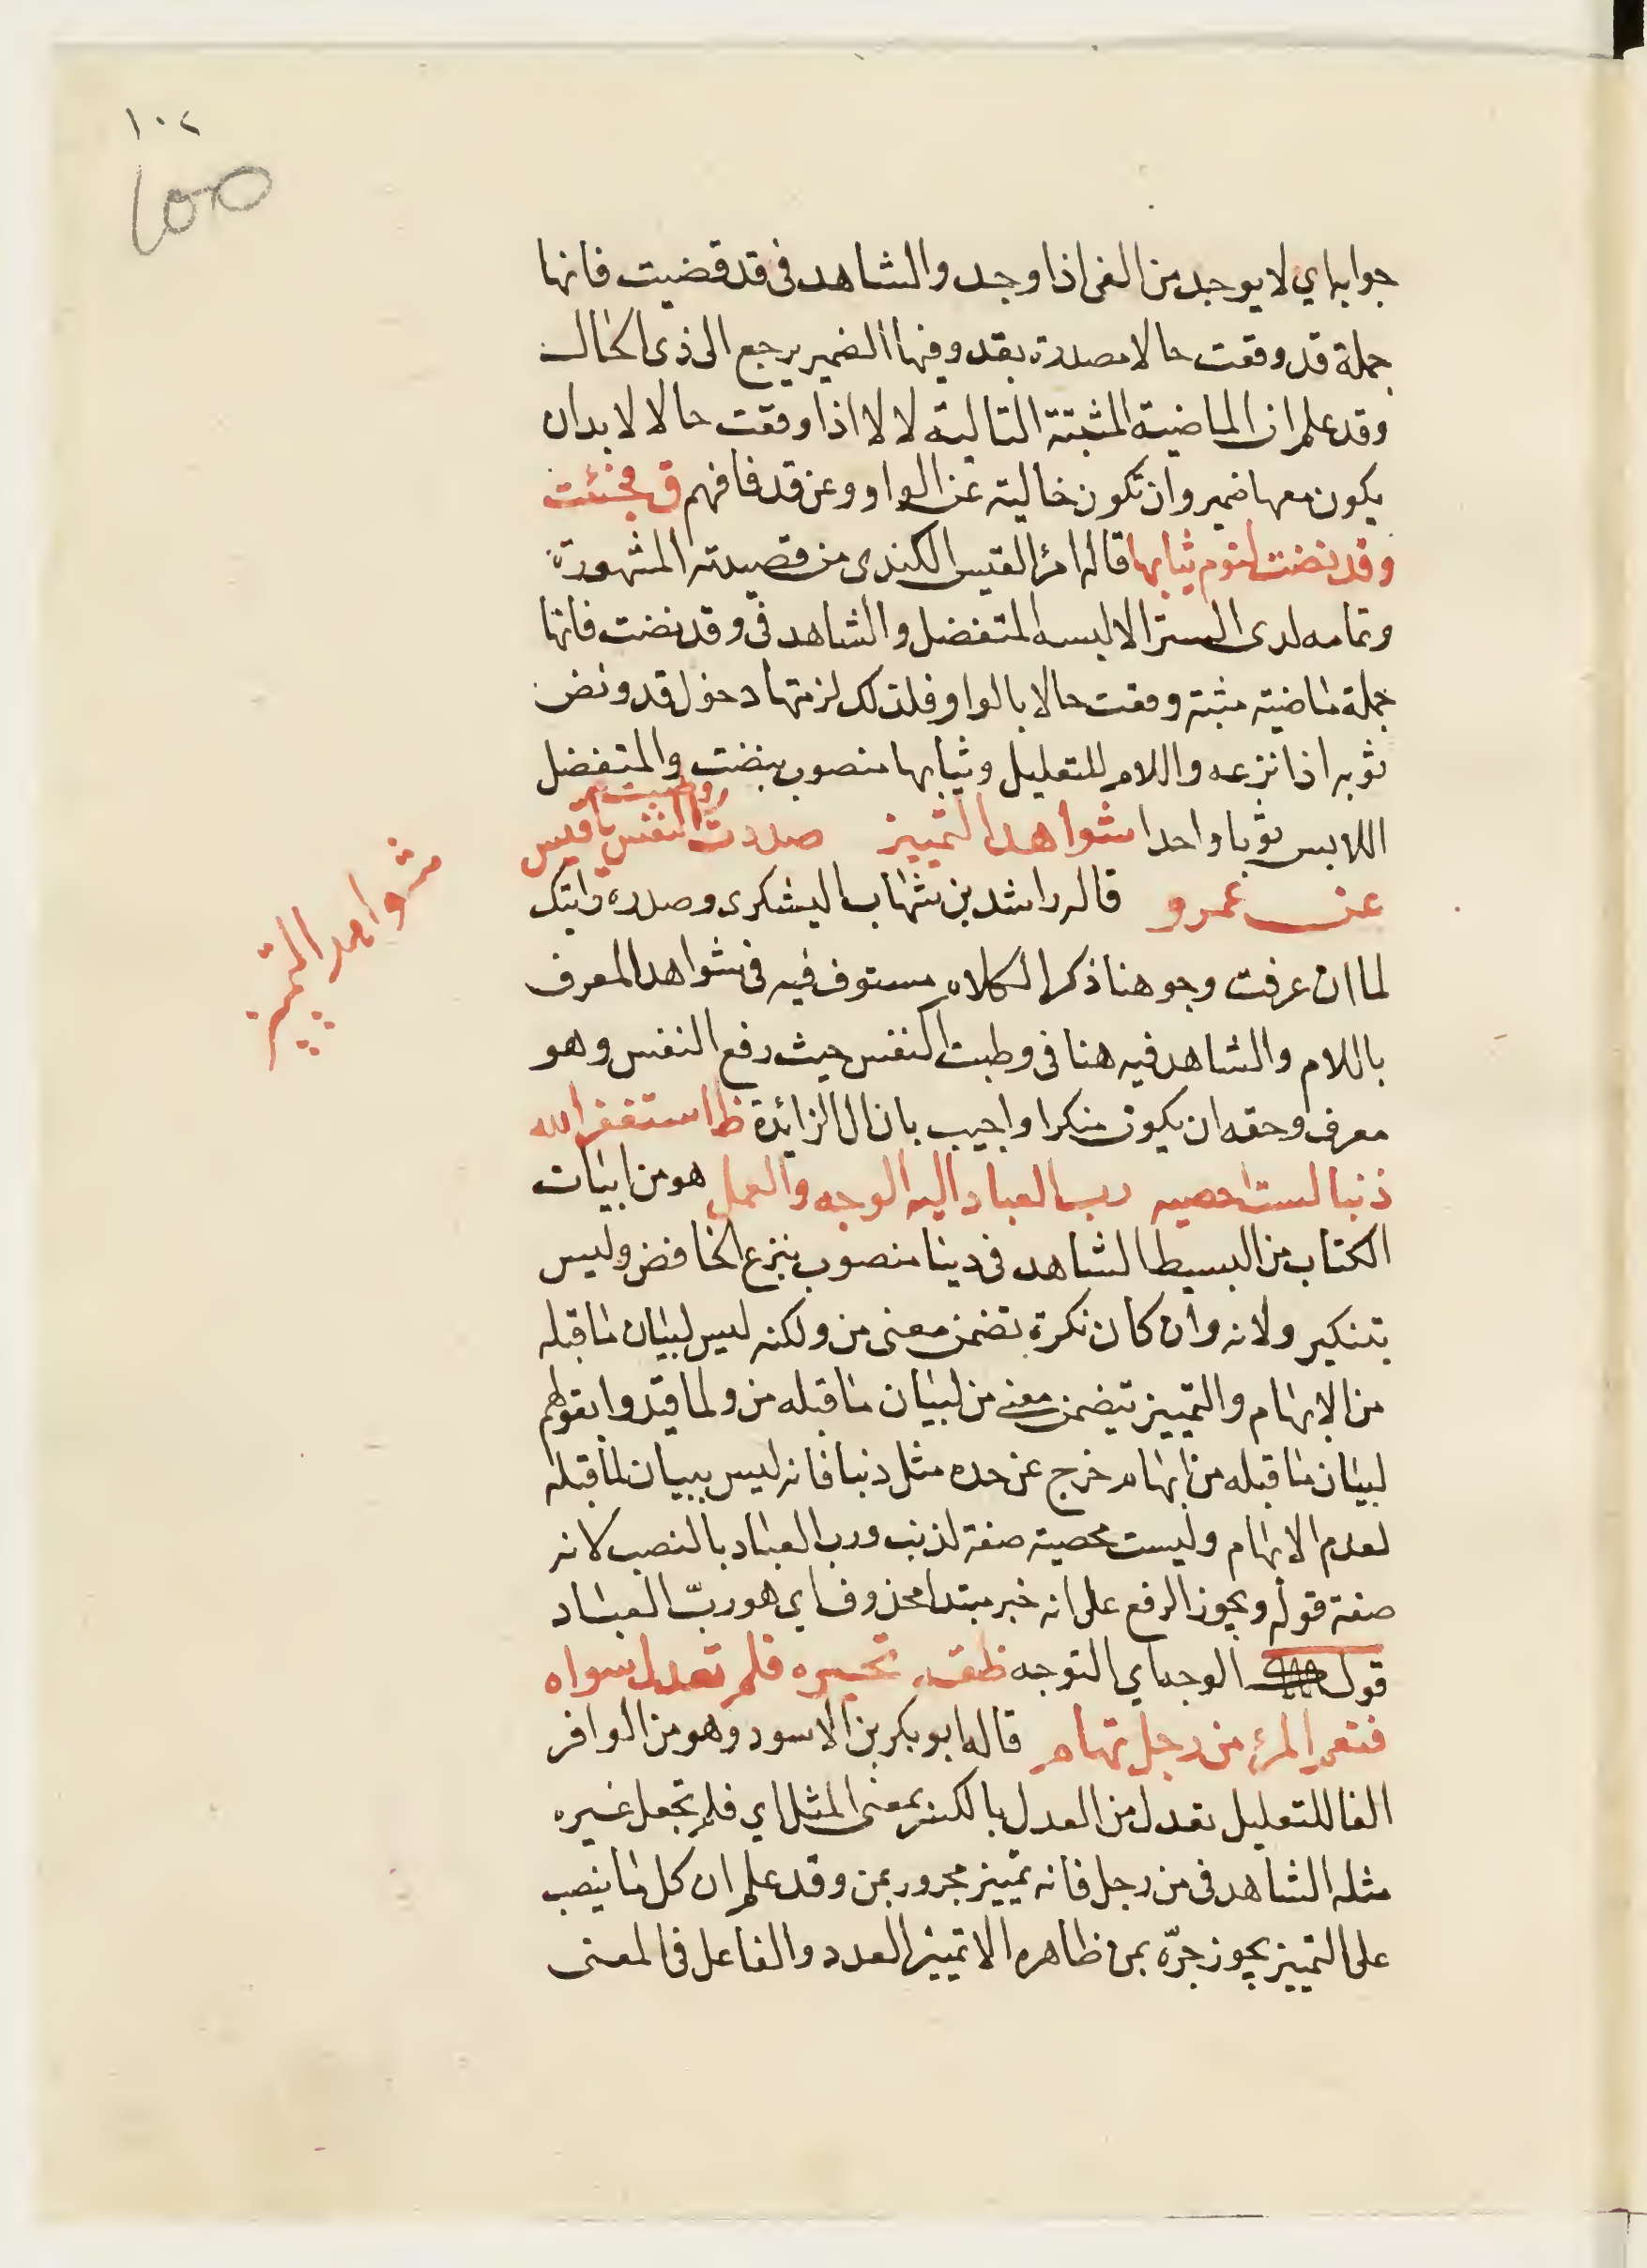 ١٠٢
١٥٥
جوابه اي لا يوجد من الفى اذا وجد والشاهد فى قد قضيت فانها
جملة قد وقعت حالا مصدرة بقد وفيها الضمير يرجع الى ذى الحال
وقد علم ان الماضية المثبتة التالية لا لا اذا وقعت حالا لا بد ان
يكون معها ضمير وان تكون خالية عن الواو وعن قد فافهم ق فجئت
وقد نضت لنوم ثيابها قاله امرئ القيس الكندى من قصيدته المشهورة
وتمامه لدى الستر الا لبسه المتفضل والشاهد فى وقد نضت فانها
جملة ماضية مثبتة وقعت حالا بالواو فلذلك لزمتها دخول قد ونض
ثوبه اذا نزعه واللام للتعليل وثيابها منصوب بنضت والمتفضل
اللابس ثوبا واحدا شواهد التمييز صددت وطبت النفس يا قيس
عن عمرو قاله راشد بن شهاب اليشكرى وصدره رايتك
لما ان عرفت وجوهنا ذكر الكلام مستوف فيه فى شواهد المعرف
باللام والشاهد فيه هنا فى وطبت النفس حيث رفع النفس وهو
معرف وحقه ان يكون منكرا واجيب بان ال الزائدة ظ استغفر الله
ذنبا لست احصيه رب العباد اليه الوجه والعمل هو من ابيات
الكتاب من البسيط الشاهد فى دينا منصوب بنزع الخافض وليس
بتنكير ولانه وان كان نكرة تضمن معنى من ولكنه ليس لبيان ما قبله
من الابهام والتمييز تتضمن معنى من لبيان ما قبله من ولما قيدوا بقولهم
لبيان ما قبله من ابهام خرج عن حده مثل ذنبا فانه ليس ببيان لما قبله
لعدم الابهام وليست محصية صفة لذنب ورب العباد بالنصب لانه
صفة قوله ويجوز الرفع على انه خبر مبتدا محذوف اي هو ربّ العباد
قوله الوجه اي التوجه ظقه تخيره فلم تعدل سواه
فنعم المرئ من رجل تهام قاله ابو بكر بن الاسود وهو من الوافر
الفا للتعليل تعدل من العدل بالكسر بمعنى المثل اي فلم تجعل غيره
مثله الشاهد فى من رجل فانه تمييز مجرور بمن وقد علم ان كل ما ينصب
على التمييز يجوز جرّه بمن ظاهره الا تمييز العدد والفاعل فى المعنى
شواهد التمييز